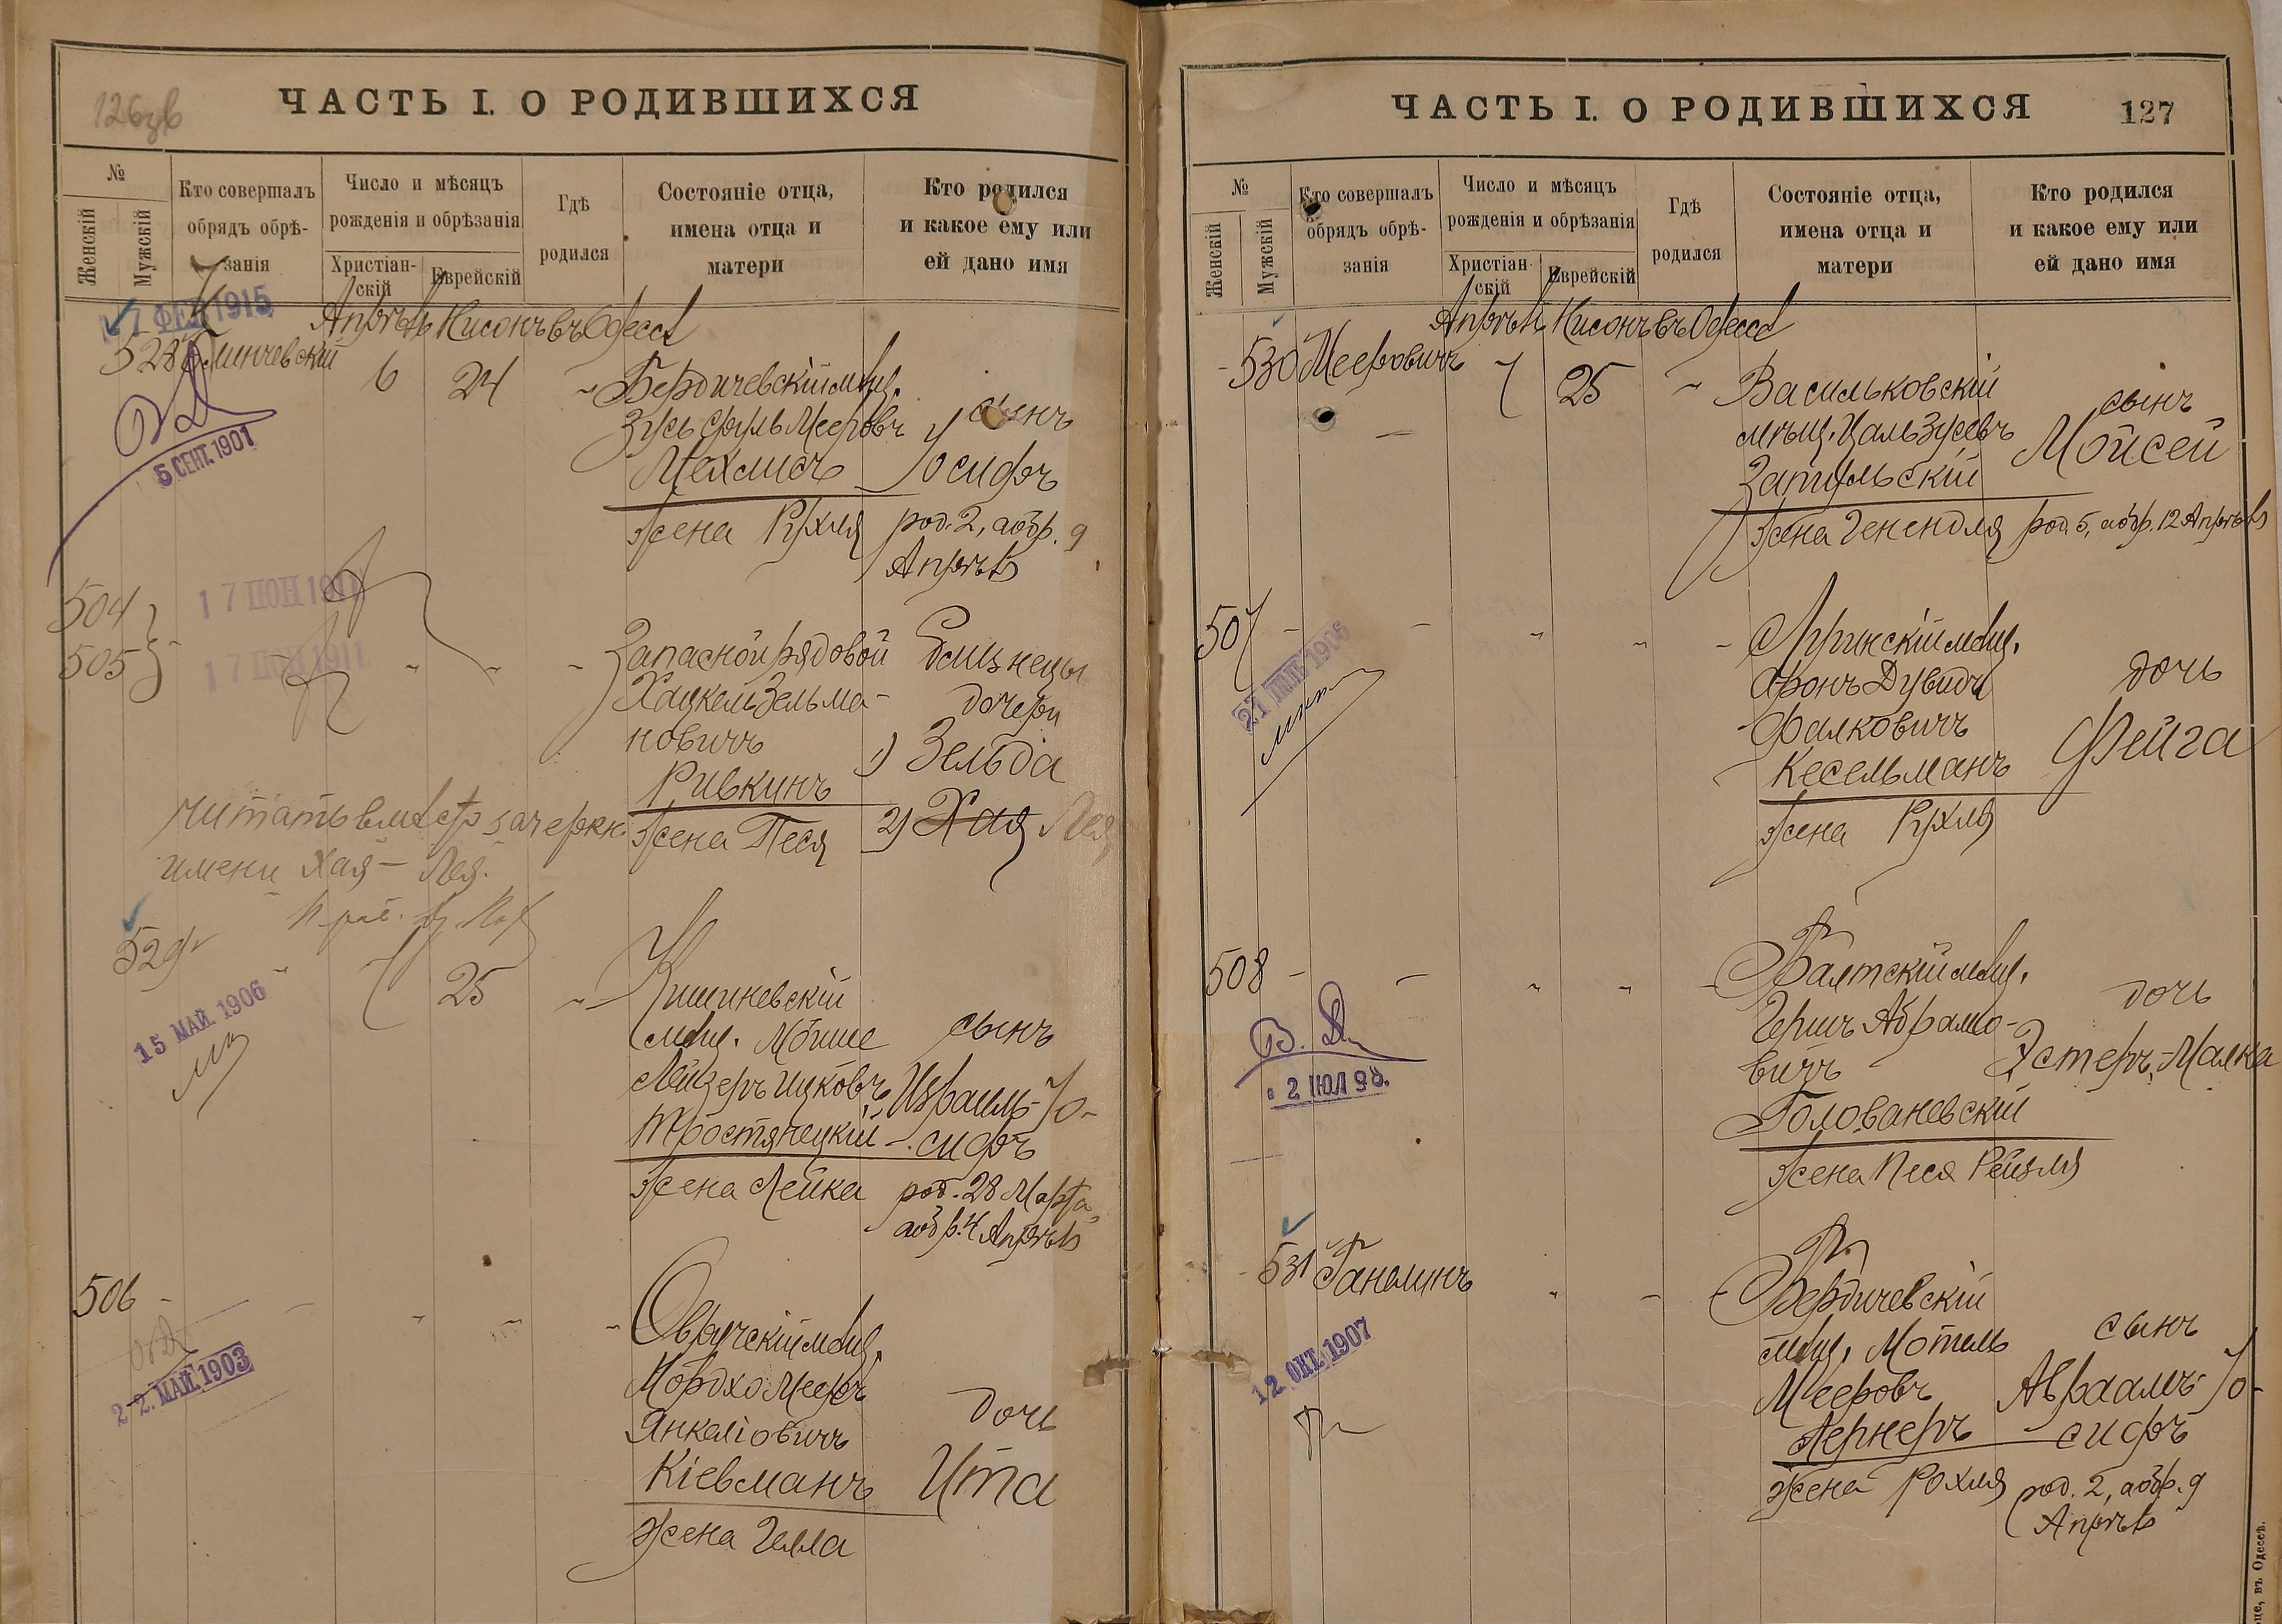 126зв
ЧАСТЬ I. О РОДИВШИХСЯ
№
Женскій
Мужскій
Кто совершалъ обрядъ обрѣ-занія
Число и мѣсяцъ рожденія и обрѣзанія
Христіан-скій
Еврейскій
Гдѣ родился
Состояніе отца, имена отца и матери
Кто родился и какое ему или ей дано имя
7 ФЕВ 1915
Апрѣль Нисонъ въ Одессѣ
528
6 24
Бердичевскій мѣщ.
Зусь Сруль Мееровъ
Мехлисъ
жена Рухля
сынъ
Іосифъ
род. 2, а обр. 9
Апрѣля
5 СЕНТ. 1901
504
505
17 ІЮН 1911
17 ІЮН 1911
Запасной рядовой
Хацкель Зельма-
новичъ
Ривкинъ
жена Песя
близнецы
дочери
1) Зельда
2) Хая Лея
читать вмѣсто зачеркн.
имени Хая – Лея.
529
7 25
15 МАЙ. 1906
Кишиневскій
мѣщ. Мойше
Лейзеръ Ицковъ
Тростянецкій
жена Лейка
сынъ
Израиль-Іо-
сифъ
род. 28 Марта,
а обр. 4 Апрѣля
506
22. МАЙ 1903
Овручскій мѣщ.
Мордхо Мееръ
Янкеліовичъ
Кіевманъ
жена Гелла
дочь
Ита
ЧАСТЬ I. О РОДИВШИХСЯ
127
№
Женскій
Мужскій
Кто совершалъ обрядъ обрѣ-занія
Число и мѣсяцъ рожденія и обрѣзанія
Христіан-скій
Еврейскій
Гдѣ родился
Состояніе отца, имена отца и матери
Кто родился и какое ему или ей дано имя
Апрѣль Нисонъ въ Одессѣ
530 Мееровичъ
7 25
Васильковскій
мѣщ. Цаль Зусевъ
Затульскій
жена Генендля
сынъ
Мойсей
род. 5, а обр. 12 Апрѣля
507
27 1906
мѣщ.
Аронъ Дувидъ
Фалковичъ
Кесельманъ
жена Рухля
дочь
Фейга
508
2 ІЮЛ 98.
Балтскій мѣщ.
Гершъ Абрамо-
вичъ
Голованевскій
жена Песя Рейзля
дочь
Эстеръ-Малка
531
12 ОКТ. 1907
Бердичевскій
мѣщ. Мотель
Мееровъ
Лернеръ
жена Рохля
сынъ
Авраамъ-Іо-
сифъ
род. 2, а обр. 9
Апрѣля
въ Одессѣ.